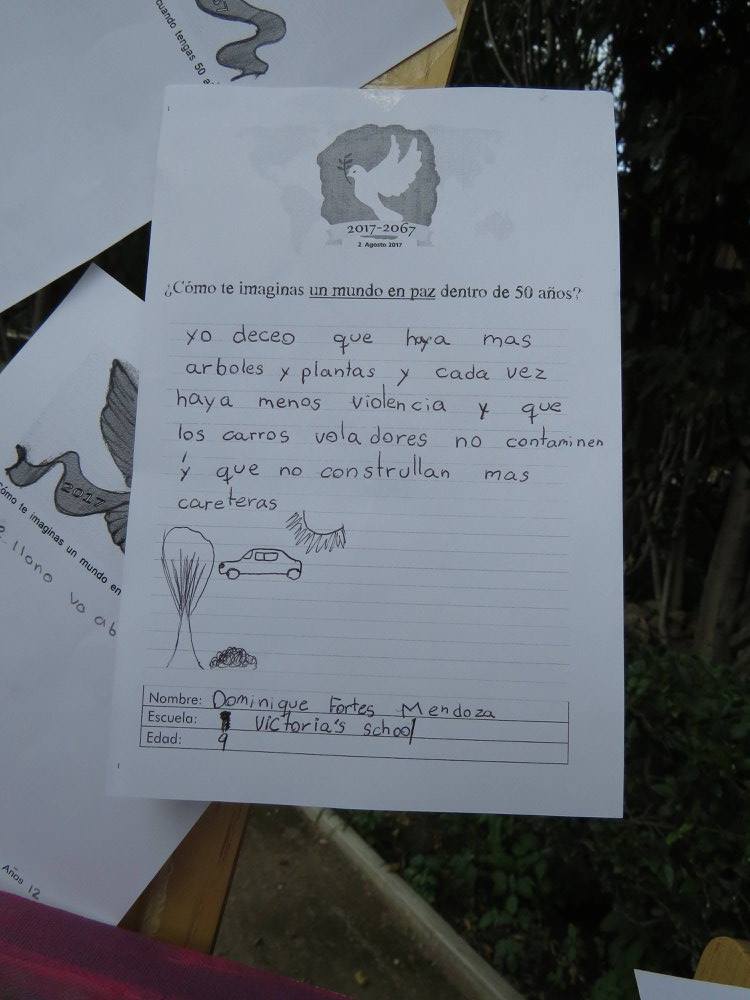 cuando tengas 50 a
2017-2067
2 Agosto 2017
¿Cómo te imaginas un mundo en paz dentro de 50 años?
yo deceo que haya mas
arboles y plantas y cada vez
haya menos violencia y que
los carros voladores no contaminen
y que no construllan mas
careteras
Nombre: Dominique Fortes Mendoza
Escuela: Victoria's school
Edad: 9
2017
Cómo te imaginas un mundo en
lleno
Años 12